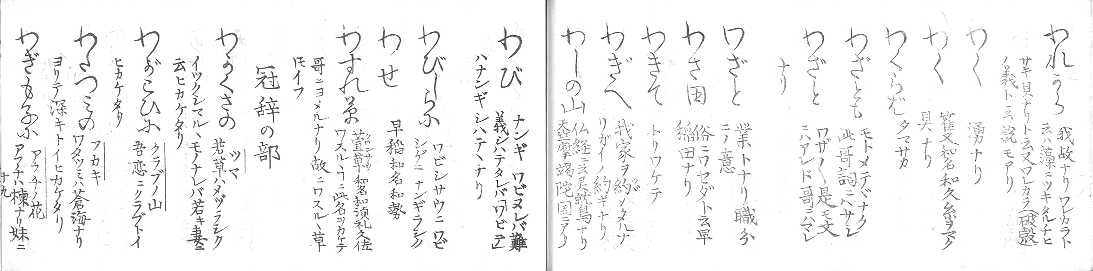 われから 我故ナリワレカラト
サキ貝ナリト云又ワレカラ
云藻ニツキタルチヒ
わく 湧ナリ
わく 籰又和名和久糸ヲマク
具ナリ
わくらば
タマサカ
わざとも モトメテバナク
此哥詞ニハサレ
わざと ワザノく是モ文
ニハアレド哥ニハマレ
ナリ
ワざと 業トナリ職分
ニノ意
わさ田 俗ニワセダト云早
稲田ナリ
わきて
トリワケテ
わぎへ 我家ヲ約メタルナ
リガイノ約ギナリ
わしの山 仏経ニ云天竺鷲ナリ
天摩竭陀国ニアリ
わび ナンギ ワビヌレバ難
義シハテタレバ「ワビテ」
ハナンギシハテヽナリ
わびしらに ワビシサウニワビ
シゲニナンギラシク
わせ 早稲和名和勢
わすれ草 萱草和名和須礼久佐
ワスルヽウニ此名ヲカケテ
哥ニヨメルナリ故ニワスルヽ草
氏イフ
冠辞の部
わかくさの ツマ
若草ハメヅラシク
イツクシマルヽモノナレバ若キ妻ニ
云ヒカケタリ
わがこひに クラブノ山
吾恋ニクラブトイ
ヒカケタリ
わたつみの フカキ
ワタツミハ蒼海ナリ
ヨリテ深キトイヒカケタリ
わぎもこに アフチノ花
アフチハ楝ナリ妹ニ
十九